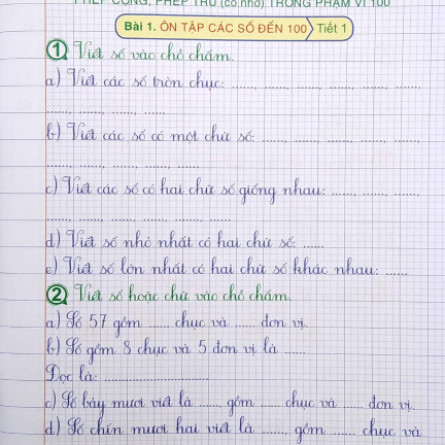 PHÉP CỘNG, PHÉP TRỪ (có nhớ) TRONG PHẠM VI 100
Bài 1. ÔN TẬP CÁC SỐ ĐẾN 100 Tiết 1
1 Viết số vào chỗ chấm.
a) Viết các số tròn chục: ....... ....... ....... ....... .......
....... ....... ....... .......
b) Viết các số có một chữ số: ....... ....... ....... ....... .......
....... ....... ....... ....... .......
c) Viết các số có hai chữ số giống nhau: ....... ....... .......
....... ....... ....... ....... ....... .......
d) Viết số nhỏ nhất có hai chữ số: ......
e) Viết số lớn nhất có hai chữ số khác nhau: ......
2 Viết số hoặc chữ vào chỗ chấm.
a) Số 57 gồm ...... chục và ...... đơn vị.
b) Số gồm 8 chục và 5 đơn vị là ......
Đọc là: ..............................
c) Số bảy mươi viết là ...... gồm ...... chục và ...... đơn vị.
d) Số chín mươi hai viết là ...... gồm ...... chục và